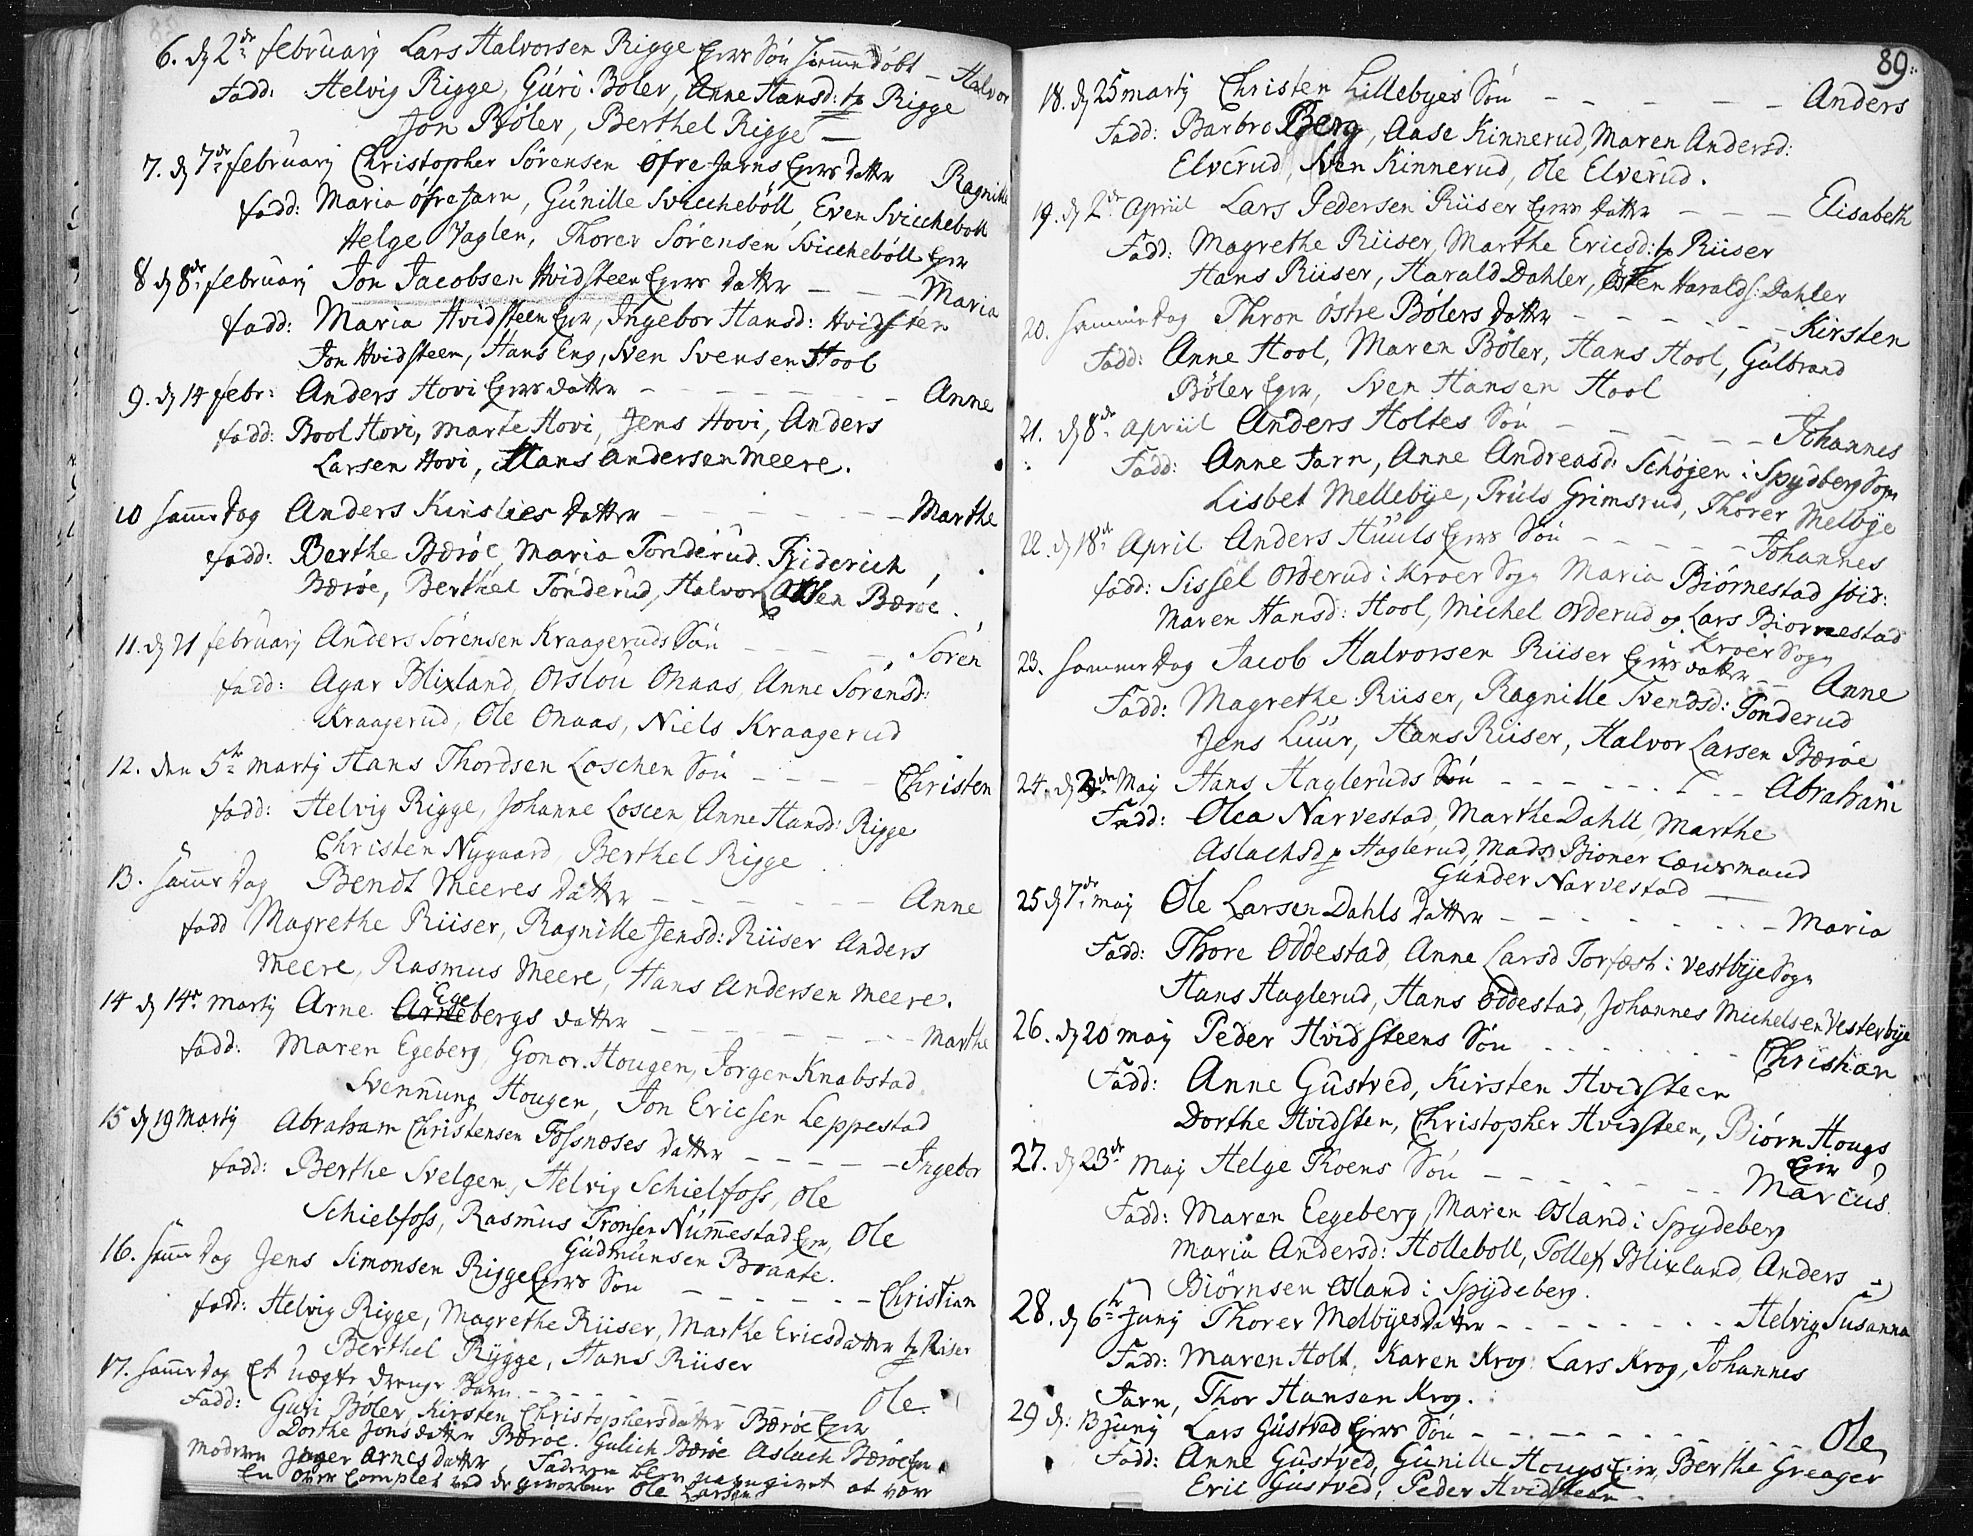 6. d 2de februarij Lars Halvorsen Rigge Ejers Søn hiemmedøbt - Halvor
Fadd: Helvig Rigge, Guri Bøler, Anne Hansd: tp Rigge
Jon Bøler, Berthel Rigge —
7. d 7de februarij Christopher Sørensen øfre Jarns Ejers datter Ragnille
fadd: Maria øfre Jarn, Gunille Svicchebøll, Even Svicchebøll
Helge Vaglen, Thorer Sørensen Svicchebøll Ejer
8 d 8de februarij Jon Jacobsen Hvidsteen Ejers datter - - - Maria
fadd: Maria Hvidsteen Ejer, Ingebor Hansd: Hvidsten
Jon Hvidsteen, Hans Eng, Sven Svensen Hool
9. d 14 febr: Anders Hovi Ejers datter - - - - - Anne
fadd: Bool Hovi, Marte Hovi, Jens Hovi, Anders
Larsen Hovi, Hans Andersen Meere.
10 samme dag Anders Kinslies datter - - - - - Marthe
fadd: Berthe Bærøe, Maria Tonderud. Friderich
Bærøe, Berthel Tonderud, Halvor Bærøe.
11. d 21 februarij Anders Sørensen Kraageruds Søn - - - - Sören
fadd: Agar Blixland, Orslou Onaas, Anne Sørensd:
Kraagerud, Ole Onaas, Niels Kraagerud
12. den 5te Martij Hans Thordsen Loschen Søn - - - - Christen
fadd: Helvig Rigge, Johanne Loscen, Anne Hansd: Rigge
Christen Nygaard, Berthel Rigge
13. samme dag Bendt Meeres datter - - - - - Anne
fadd Magrethe Riiser, Ragnille Jensd: Riiser Anders
Meere, Rasmus Meere, Hans Andersen Meere.
14 d 14de Martij Arne Egebergs datter - - - - - Marthe
fadd: Maren Egeberg, Gonor Hougen, Jørgen Knabstad
Svennung Hougen, Jon Ericsen Leppestad
15 d 19 Martij Abraham Christensen Fossnæses datter - - - - Ingebor
fadd: Berthe Svelgen, Helvig Schielfoss, Ole
Schielfoss, Rasmus Tronsen Nummestad Ejer, Ole
Gudmunsen Braate.
16. samme dag Jens Simonsen Rigge Ejers Søn - - - - - Christian
fadd: Helvig Rigge, Magrethe Riiser, Marthe Ericsdatter tp Riiser
Berthel Rygge, Hans Riiser
17. samme dag Et uægte drenge Barn - - - - - Ole.
Fadd: Guri Bøler, Kirsten Christophersdatter Bærøe Ejer
Dorthe Jonsdatter Bærøe. Gulich Bærøe Aslach Bærøe Ejer
Moderen Inger Arnesdatter, Faderen blev navngivet at være
En ved de Ole Larsen
89.
18. d 25 martij Christen Lillebyes Søn - - - - - Anders
Fadd: Barbro Berg, Aase Kinnerud, Maren Andersd:
Elverud, Sven Kinnerud, Ole Elverud.
19. d 2de Apriil Lars Pedersen Riiser Ejers datter - - - Elisabeth
Fadd: Magrethe Riiser, Marthe Ericsd: tp Riiser
Hans Riiser, Harald Dahler, Østen Haralds: Dahler
20. samme dag Thron østre Bølers datter - - - - - Kirsten
Fadd: Anne Hool, Maren Bøler, Hans Hool, Gulbrand
Bøler Ejer, Sven Hansen Hool
21. d 8de Apriil Anders Holtes Søn - - - - - Johannes
Fadd: Anne Jarn, Anne Andreasd: Schøjen i Spydberg Sogn
Lisbet Mellebÿe, Truls Grimsrud, Thorer Melbye
22. d 18de April Anders Huuls Ejers Søn - - - - - Johannes
fadd: Sissel Orderud i Kroer Sogn Maria Biørnestad ibid:
Maren Hansd: Hool, Michel Orderud og Lars Biørnestad
i Kroer Sogn
23. samme dag Jacob Halvorsen Riiser Ejers datter - - Anne
Fadd: Magrethe Riiser, Ragnille Svendsd: Tonderud
Jens Luur, Hans Riiser, Halvor Larsen Bærøe
24. d 3de Maij Hans Hagleruds Søn - - - - - Abraham
Fadd: Olea Narvestad, Marthe Dahll, Marthe
Aslachsd p Haglerud, Mads Bioner Lænsmand
Gunder Narvestad —
25 d 7de maij Ole Larsen Dahls datter - - - - - Maria
Fadd: Thore Oddestad, Anne Larsd Torfæst i Vestbye Sogn
Hans Haglerud, Hans Oddestad, Johannes Michelsen Vesterbye
26. d 20 maij Peder Hvidsteens Søn - - - - - Christian
Fadd: Anne Gustved, Kirsten Hvidsteen
Dorthe Hvidsten, Christopher Hvidsteen, Biørn Hougs
Ejer
27. d 23de maij Helge Moens Søn - - - - - Marcus.
Fadd: Maren Eegeberg, Maren Osland i Spydeberg
Maria Andersd: Holleboll, Tollef Blixland, Anders
Biörnsen Osland i Spydeberg.
28. d 6te Junij Thorer Melbyes datter - - - - - Helvig Susanna
Fadd: Maren Holt, Karen Krog. Lars Krog, Johannes
Jarn, Thor Hansen Krog.
29 d: 13 Junij Lars Gustved Ejers Søn - - - - - Ole
Fadd: Anne Gustved, Gunille Hougs Ejer, Berthe Greager
Eric Gustved, Peder Hvidsteen -